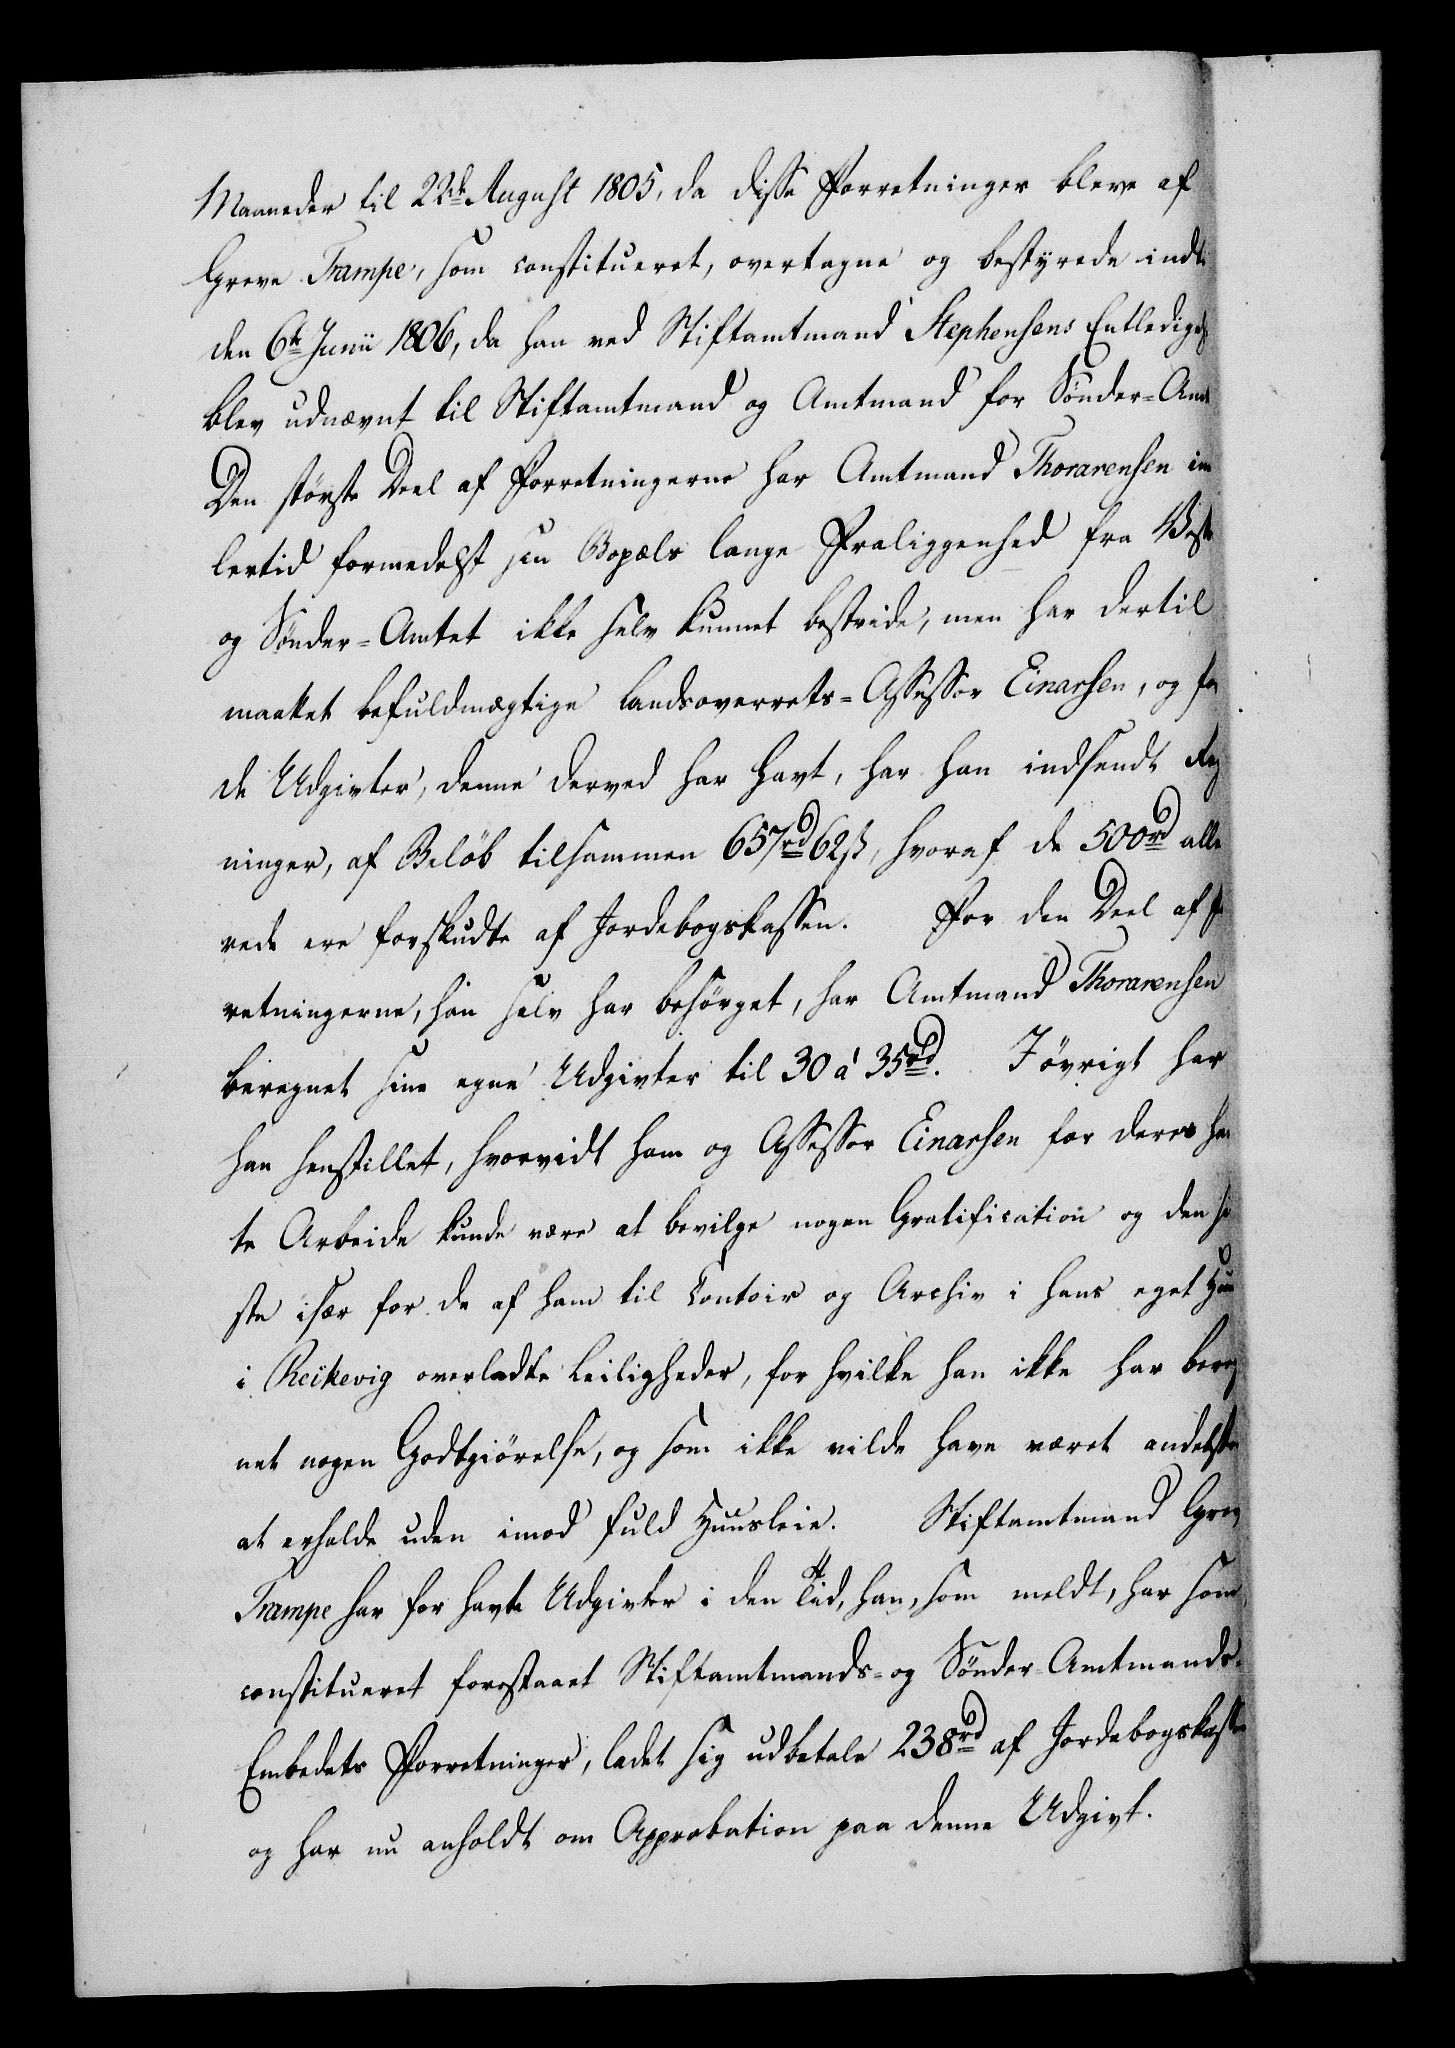 Maaneder til 22de August 1805, da disse Forretninger bleve af
Greve Trampe, som constitueret, overtagne og bestyrede indti
den 6te Junii 1806, da han ved Stiftamtmand Stephensens Entledigels
blev udnævnt til Stiftamtmand og Amtmand for Sönder-Amt
Den störste Deel af Forretningerne har Amtmand Thorarensen im
lertid formedelst sin Bopæls lange Fraliggenhed fra Vest
og Sönder-Amtet ikke selv kunnet bestride, men har dertil
maattet befuldmægtige Landsoverrets-Assessor Einarsen, og for
de Udgivter, denne derved har havt, har han indsendt Reg
ninger, af Belöb tilsammen 657rd 62s, hvoraf de 500rd alle
rede ere forskudte af Jordebogskassen. For den Deel af Fo
retningerne, han selv har besörget, har Amtmand Thorarensen
beregnet sine egne Udgivter til 30 á 35rd. I övrigt har
han henstillet, hvorvidt ham og Assessor Einarsen for deres hav
te Arbeide kunde være at bevilge nogen Gratification og den si
ste især for de af ham til Contoir og Archiv i hans eget Huus
i Reikevig overladte Leiligheder, for hvilke han ikke har bereg
net nogen Godtgiörelse, og som ikke vilde have været andetste
at erholde uden imod fuld Huusleie. Stiftamtmand Grev
Trampe har for havte Udgivter i den Tid, han, som meldt, har som
constitueret forestaaet Stiftamtmands- og Sönder-Amtmands-
Embedets Forretninger, ladet sig udbetale 238rd af Jordebogskassen
og har nu anholdt om Approbation paa denne Udgivt.